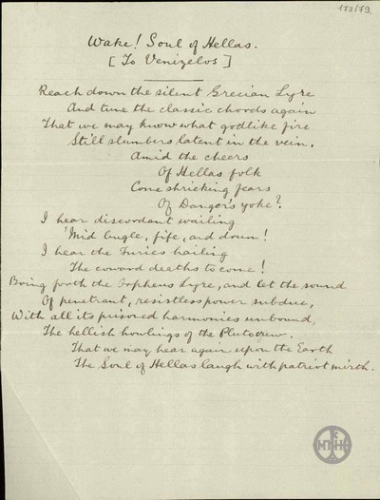 183/79
Wake! Soul of Hellas.
[To Venizelos]
Reach down the silent Grecian Lyre
And tune the classic chords again
That we may know what godlike fire
Still slumbers latent in the vein.
Amid the cheers
Of Hellas folk
Come shricking fears
Of Danger's yoke?
I hear discordant wailing
'Mid bugle, fife, and drum!
I hear the Furies hailing
The coward deaths to come!
Bring forth the Orpheus Lyre, and let the sound
Of penetrant, resistless power subdue,
With all its prisoned harmonies unbound,
The hellish howlings of the
That we may hear again upon the Earth
The Soul of Hellas laugh with patriot mirth.